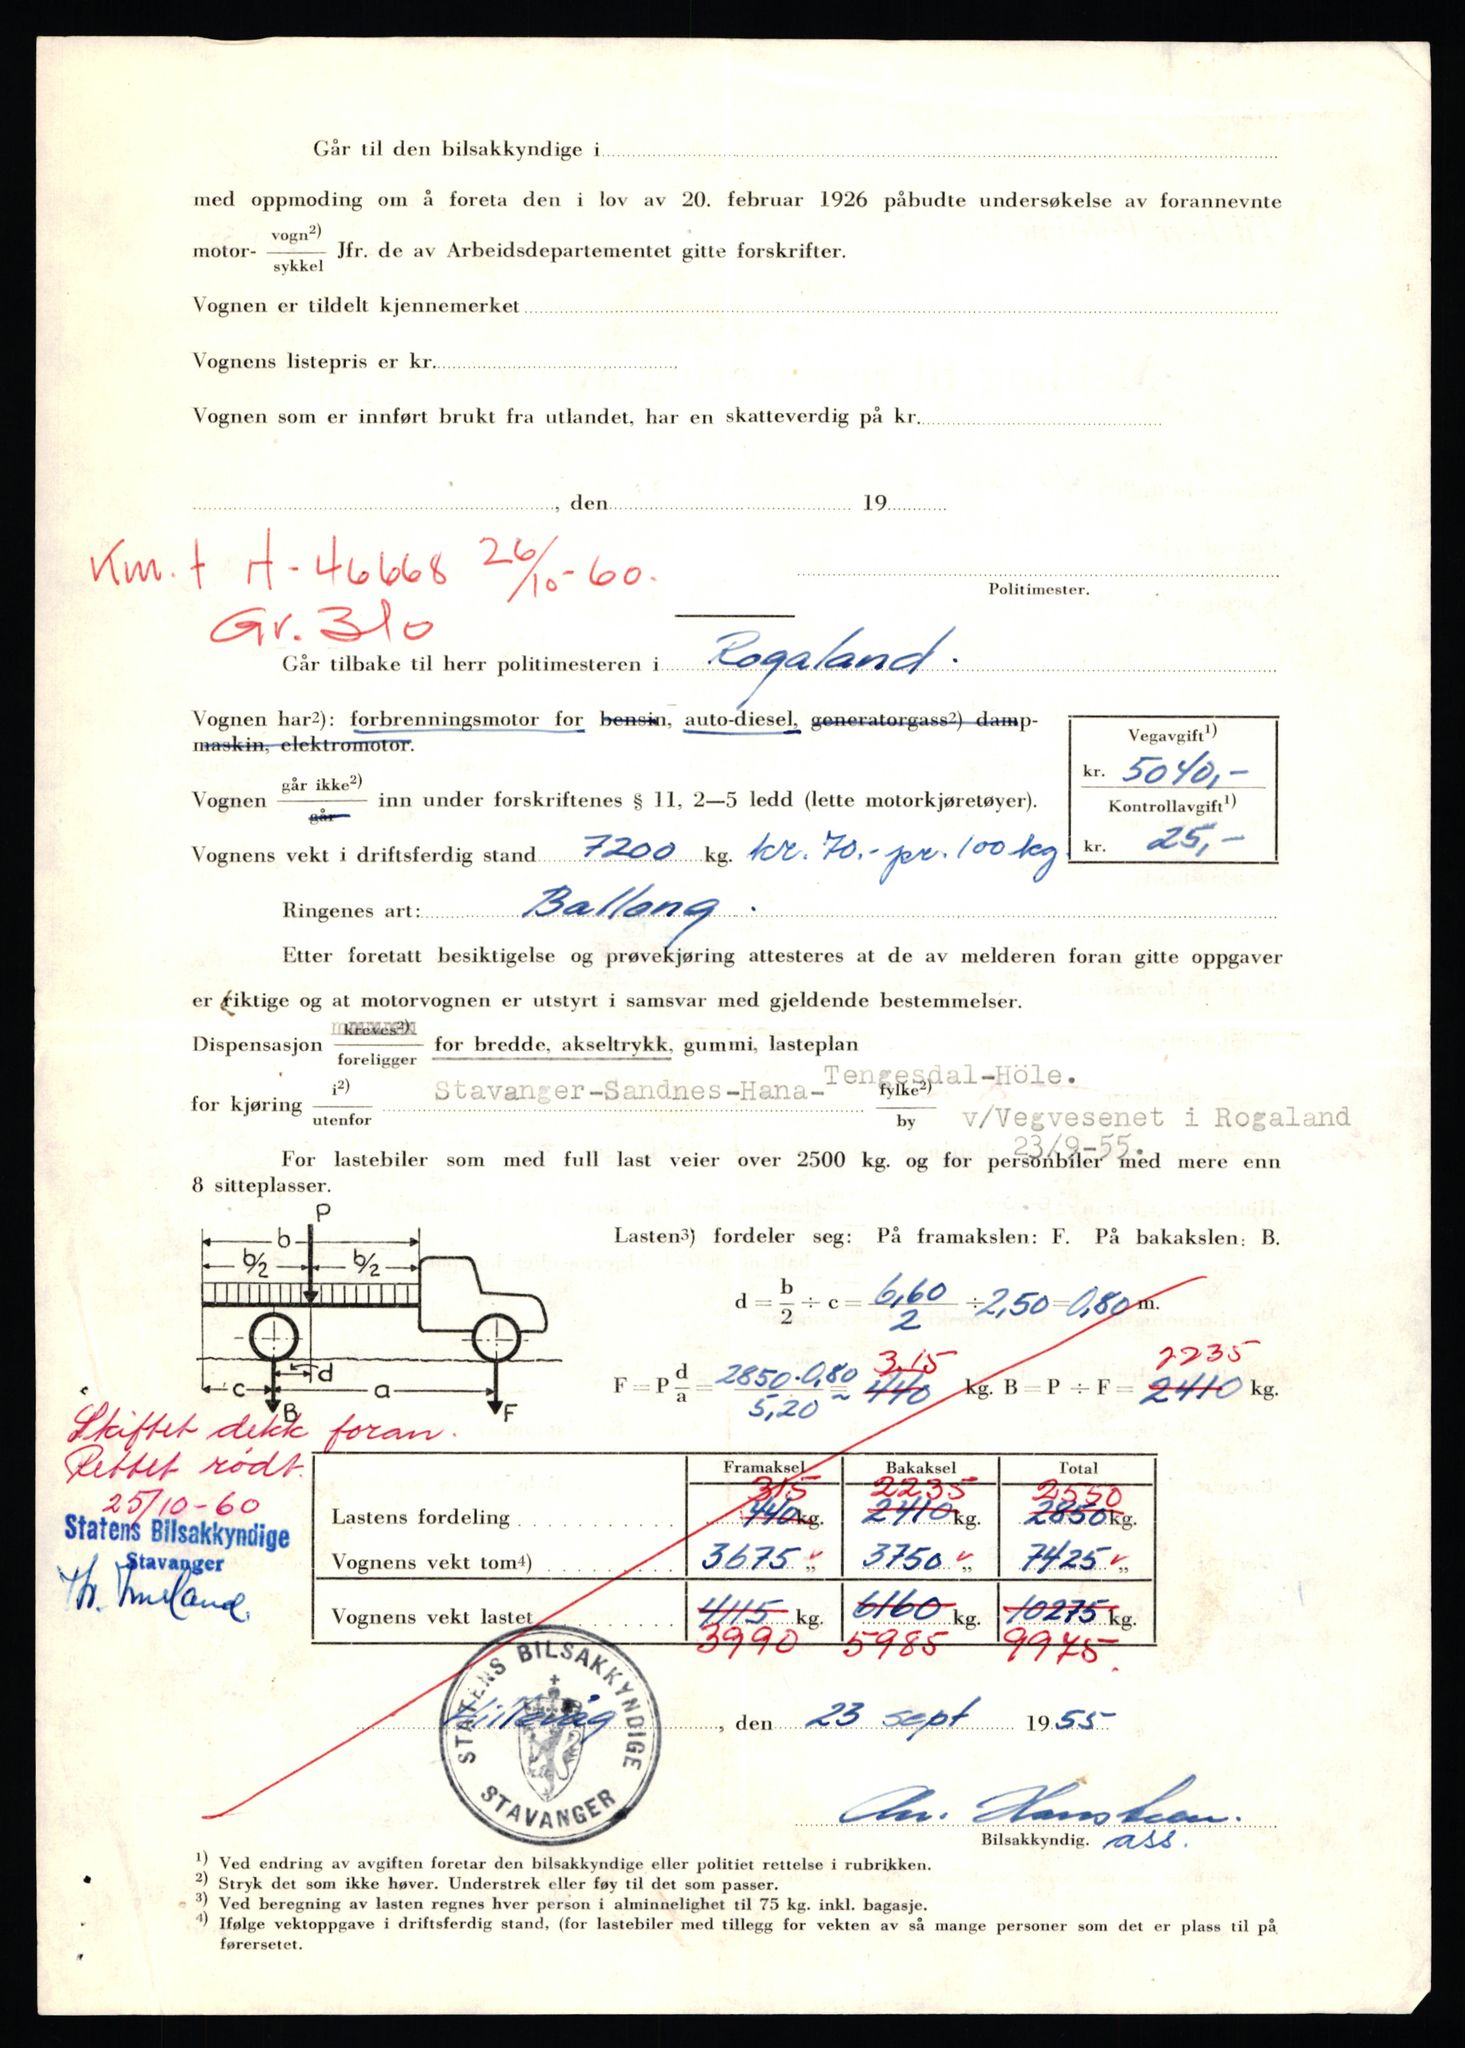 Går til den bilsakkyndige i
med oppmoding om å foreta den i lov av 20. februar 1926 påbudte undersøkelse av forannevnte
motor- vogn2) / sykkel Jfr. de av Arbeidsdepartementet gitte forskrifter.
Vognen er tildelt kjennemerket
Vognens listepris er kr.
Vognen som er innført brukt fra utlandet, har en skatteverdig på kr.
, den 19
Km. t H-46668 26/10-60.
Politimester.
Gr. 310
Går tilbake til herr politimesteren i Rogaland.
Vognen har2): forbrenningsmotor for bensin, auto-diesel, generatorgass2) damp-
maskin, elektromotor.
Vegavgift1)
kr. 5040,-
Kontrollavgift1)
kr. 25,-
Vognen går ikke2) / går inn under forskriftenes § 11, 2—5 ledd (lette motorkjøretøyer).
Vognens vekt i driftsferdig stand 7200 kg. kr. 70.- pr. 100 kg
Ringenes art: Ballong.
Etter foretatt besiktigelse og prøvekjøring attesteres at de av melderen foran gitte oppgaver
er riktige og at motorvognen er utstyrt i samsvar med gjeldende bestemmelser.
Dispensasjon kreves2) / foreligger for bredde, akseltrykk, gummi, lasteplan
for kjøring i2) / utenfor Stavanger-Sandnes-Hana-Tengesdal-Höle. fylke2) / by v/Vegvesenet i Rogaland
23/9-55.
For lastebiler som med full last veier over 2500 kg. og for personbiler med mere enn
8 sitteplasser.
P
b
b/2 b/2
d
c a
B F
Lasten3) fordeler seg: På framakslen: F. På bakakslen: B.
d = b/2 ÷ c = 6,60/2 ÷ 2,50 = 0,80 m.
3.15 2235
F = P d/a = 2850 · 0,80 / 5,20 = ~ 440 kg. B = P ÷ F = 2410 kg.
Skiftet dekk foran.
Rettet rödt.
25/10-60
Statens Bilsakkyndige
Stavanger
Framaksel Bakaksel Total
315 2235 2550
Lastens fordeling 440 kg. 2410 kg. 2850 kg.
Vognens vekt tom4) 3675 „ 3750 „ 7425 „
Vognens vekt lastet 4115 kg. 6160 kg. 10275 kg.
3990 5985 9975.
STATENS BILSAKKYNDIGE
STAVANGER
Hillevåg, den 23 sept 1955
Bilsakkyndig. ass.
1) Ved endring av avgiften foretar den bilsakkyndige eller politiet rettelse i rubrikken.
2) Stryk det som ikke høver. Understrek eller føy til det som passer.
3) Ved beregning av lasten regnes hver person i alminnelighet til 75 kg. inkl. bagasje.
4) Ifølge vektoppgave i driftsferdig stand, (for lastebiler med tillegg for vekten av så mange personer som det er plass til på
førersetet.